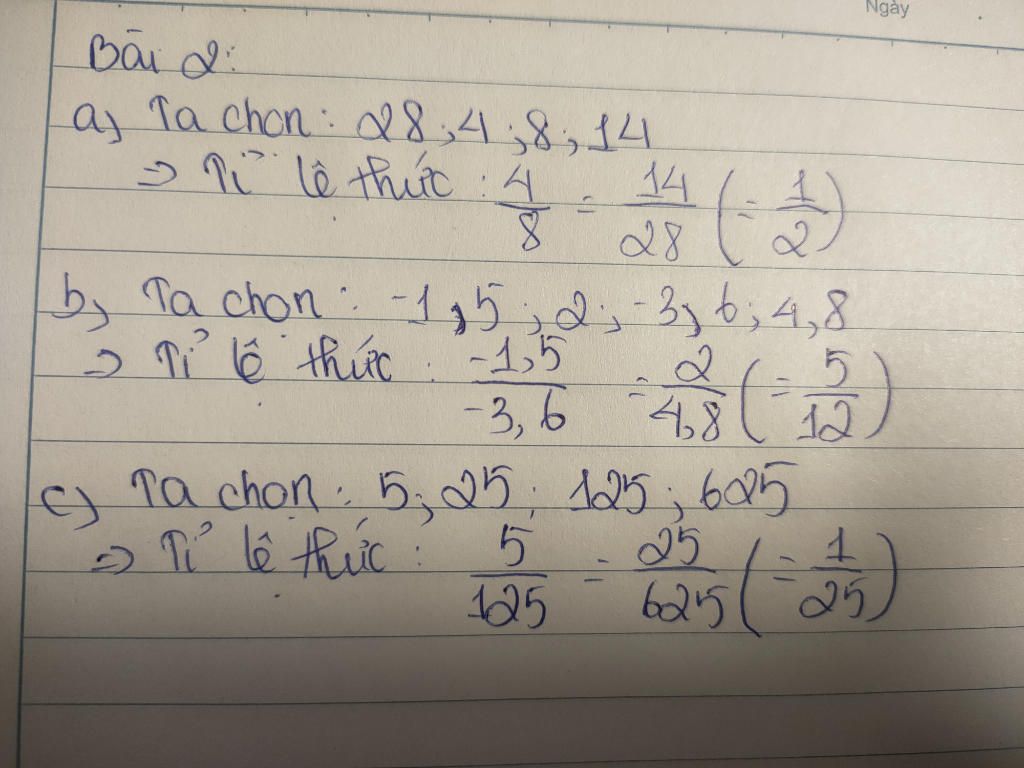 Ngày
Bài 2:
a) Ta chọn: 28; 4; 8; 14
=> Tỉ lệ thức: 4/8 = 14/28 (= 1/2)
b) Ta chọn: -1,5; 2; -3,6; 4,8
=> Tỉ lệ thức: -1,5/-3,6 = 2/4,8 (= 5/12)
c) Ta chọn: 5; 25; 125; 625
=> Tỉ lệ thức: 5/125 = 25/625 (= 1/25)